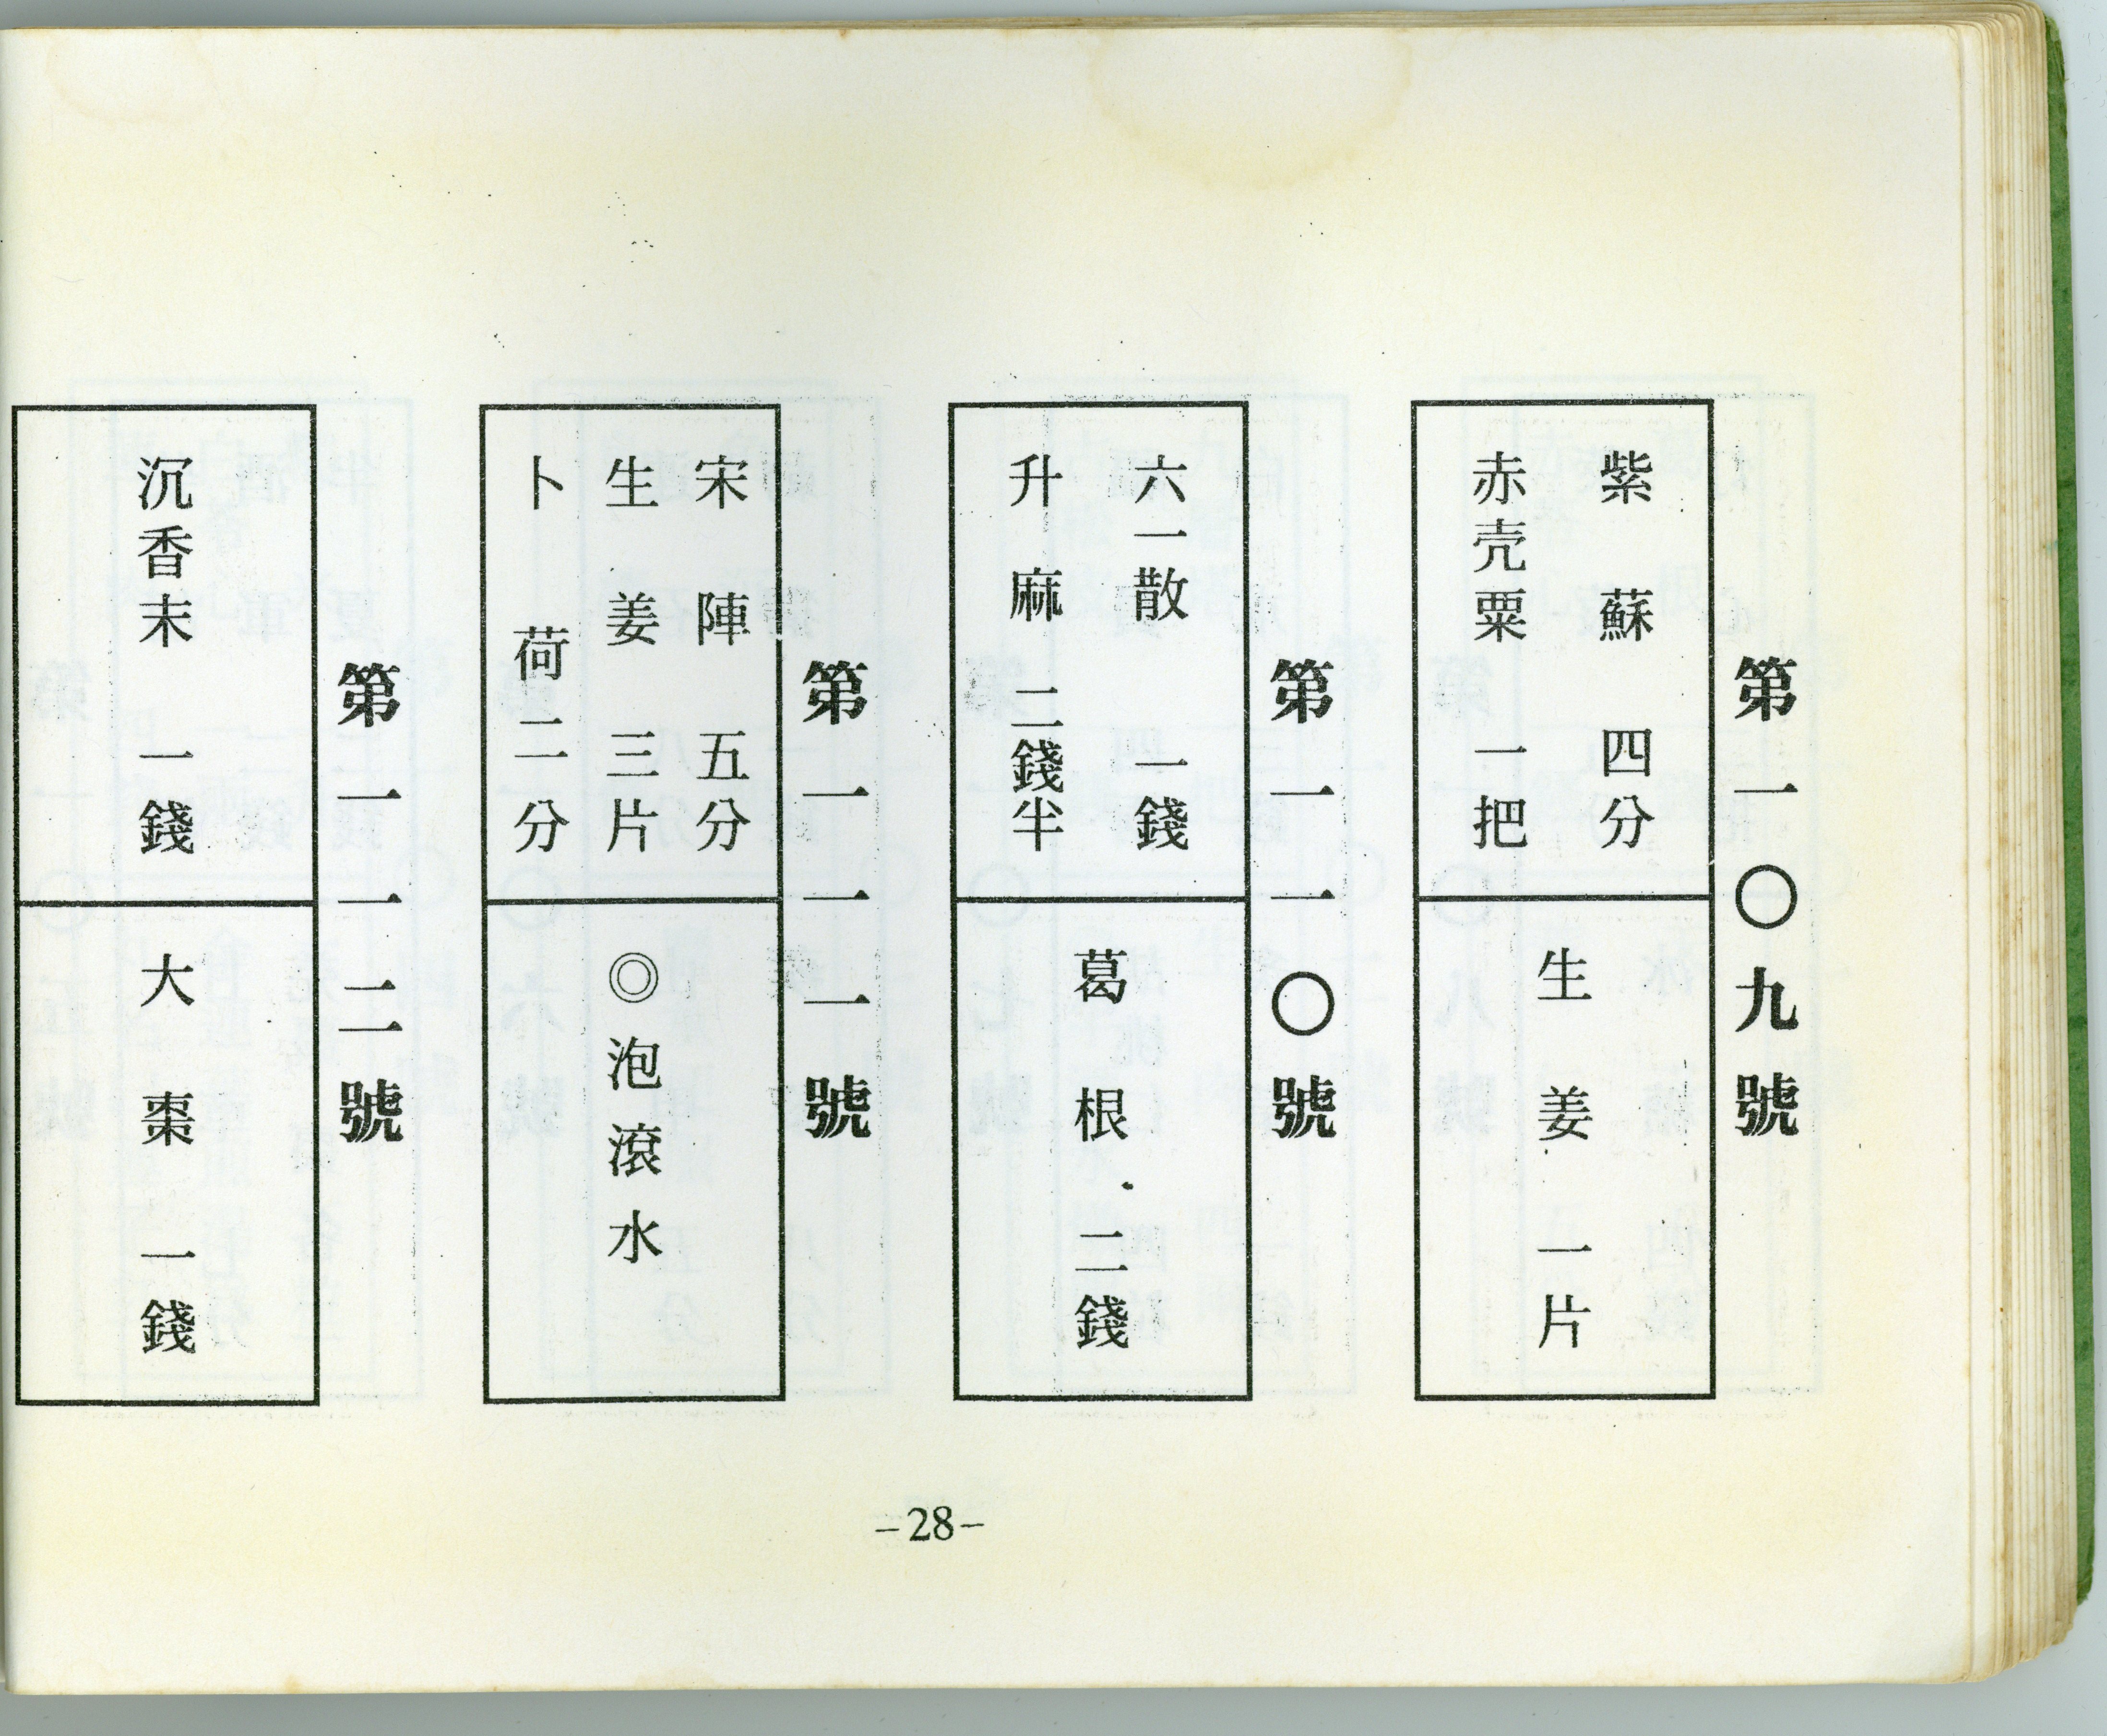 第一〇九號
紫蘇 四分
赤壳粟 一把
生姜 一片
第一一〇號
六一散 一錢
升麻 二錢半
葛根 二錢
第一一一號
宋陳 五分
生姜 三片
卜荷 二分
◎泡滾水
第一一二號
沉香末 一錢
大棗 一錢
-28-